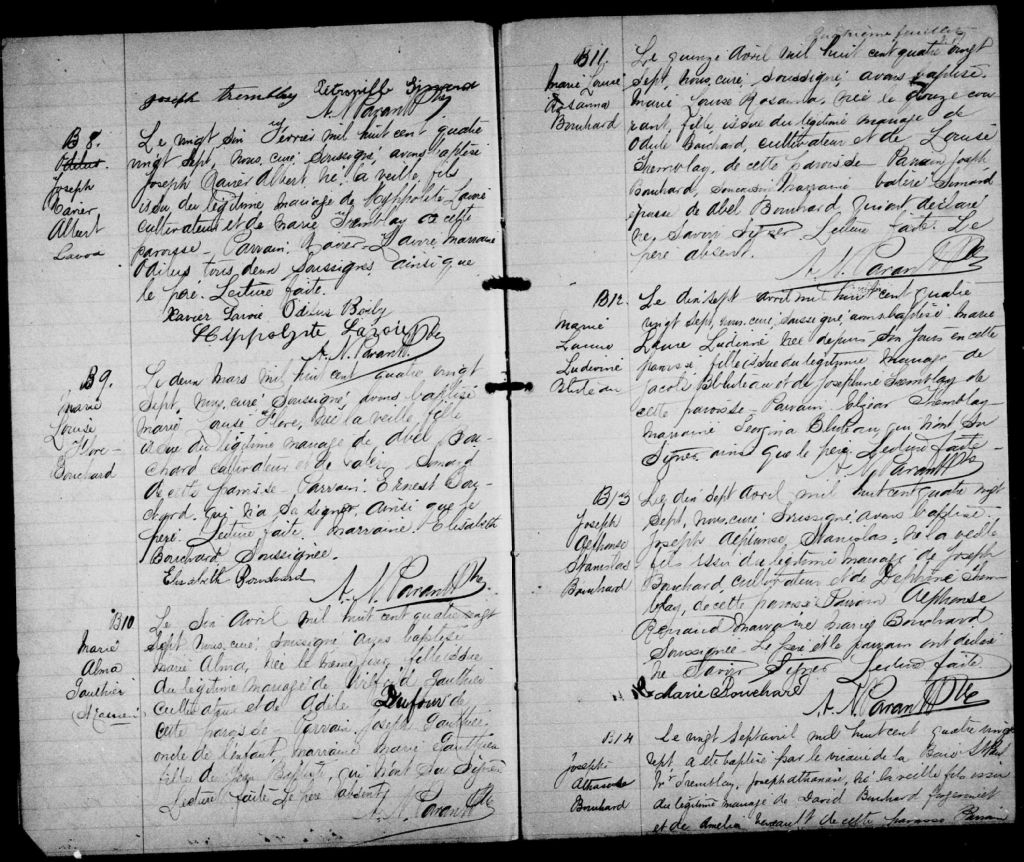 Joseph Tremblay Pétronille Simard
A. N. Parant Ptre
B 8.
Odilus
Joseph
Xavier
Albert
Lavoi
Le vingt six Fevrier mil huit cent quatre
vingt sept, nous, curé soussigné, avons baptisé
Joseph Xavier Albert, né la veille, fils
issu du légitime mariage de Hyppolite Lavoie
cultivateur et de Marie Tremblay de cette
paroisse. Parrain: Xavier Lavoie marraine
Odilus tous deux soussignés, ainsi que
le père. Lecture faite.
Xavier Lavoie Odilus Boily
Hippolyte Lavoie
A. N. Parant Ptre
B 9.
Marie
Louise
Flore
Bouchard
Le deux Mars mil huit cent quatre vingt
sept, nous, curé soussigné, avons baptisé
Marie Louise Flore, née la veille, fille
issue du légitime mariage de Abel Bou-
chard cultivateur et de Simard
de cette paroisse. Parrain: Ernest
qui n'a su signer, ainsi que le
père. Lecture faite, marraine: Elisabeth
Bouchard Soussignée.
Elisabeth Bouchard
A. N. Parant Ptre
B10
Marie
Alma
Gauthier
Le six Avril mil huit cent quatre vingt
sept nous, curé soussigné avons baptisé
Marie Alma, née le même jour, fille issue
du légitime mariage de Wilfrid Gauthier
cultivateur et de Adèle Dufour de
cette paroisse Parrain Joseph Gauthier
oncle de l'enfant, marraine Marie Gauthier
fille de Jean Baptiste, qui n'ont su signer
Lecture faite Le père absent
A. N. Parant Ptre
feuillet
B11.
Marie Louise
Rosanna
Bouchard
Le quinze Avril mil huit cent quatre vingt
sept, nous, curé soussigné, avons baptisé
Marie Louise Rosanna, née le douze cou-
rant, fille, issue du légitime mariage de
Odule Bouchard, cultivateur et de Louise
Tremblay, de cette paroisse Parrain Joseph
Bouchard, Marraine Simard
épouse de Abel Bouchard qui ont déclaré
ne savoir signer Lecture faite. Le
père absent.
A. N. Parant Ptre
B12.
Marie
Laure
Ludivine
Bluteau
Le dix sept avril mil huit cent quatre
vingt sept, nous, curé, soussigné, avons baptisé Marie
Laure Ludivine née depuis six jours en cette
paroisse, fille issue du légitime mariage de
Jacob Bluteau et de Josephine Tremblay de
cette paroisse, Parrain: Elzéar Tremblay
Marraine Georgina Bluteau, qui n'ont su
signer ainsi que le père, Lecture faite
A. N. Parant Ptre
B13
Joseph
Alphonse
Stanislas
Bouchard
Le dix sept Avril, mil huit cent quatre vingt
sept, nous, curé soussigné, avons baptisé
Joseph Alphonse, Stanislas, né la veille
fils issu du légitime mariage de Joseph
Bouchard, cultivateur et de Delphine Trem-
blay, de cette paroisse Parrain Alphonse
Renaud marraine Marie Bouchard
Soussignée. Le père et le parrain ont déclaré
ne savoir signer Lecture faite
Marie Bouchard
A. N. Parant Ptre
B14
Joseph
Athanase
Bouchard
Le vingt sept avril mil huit cent quatre vingt
sept a été baptisé par le vicaire de la Baie St Paul
Mr Tremblay, Joseph Athanase, né la veille fils issu
du légitime mariage de David Bouchard
et de Amelia de cette paroisse Parrain